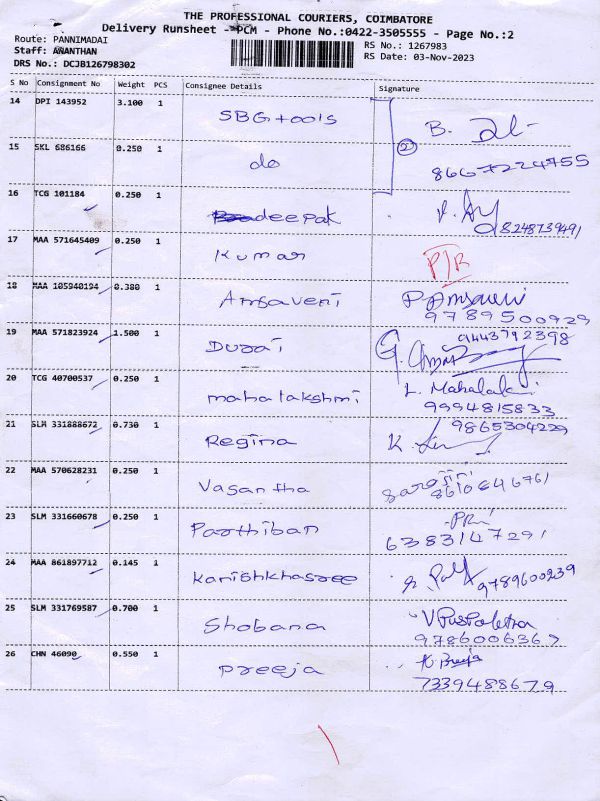 THE PROFESSIONAL COURIERS, COIMBATORE
Delivery Runsheet - PCM - Phone No.:0422-3505555 - Page No.:2
Route: PANNIMADAI
RS No.: 1267983
Staff: ANANTHAN
RS Date: 03-Nov-2023
DRS No.: DCJB126798302
S No Consignment No Weight PCS Consignee Details Signature
14 DPI 143952 3.100 1 SBG tools B.
15 SKL 686166 0.250 1 do 2 8667224755
16 TCG 101184 0.250 1 deepak 8248739491
17 MAA 571645409 0.250 1 Kumar
18 MAA 105940194 0.380 1 Amsaveni P Amsaveni
9789500929
19 MAA 571823924 1.500 1 Durai 9443792398
20 TCG 40700537 0.250 1 mahalakshmi L. Mahalakshmi
9994815833
21 SLM 331888672 0.730 1 Regina 9865304229
22 MAA 570628231 0.250 1 Vasantha Sarojini
23 SLM 331660678 0.250 1 Parthiban
6383147291
24 MAA 861897712 0.145 1 Kanishkhasree 9789600239
25 SLM 331769587 0.700 1 Shobana
9786006367
26 CHN 46090 0.550 1 Preeja Preeja
7339488679